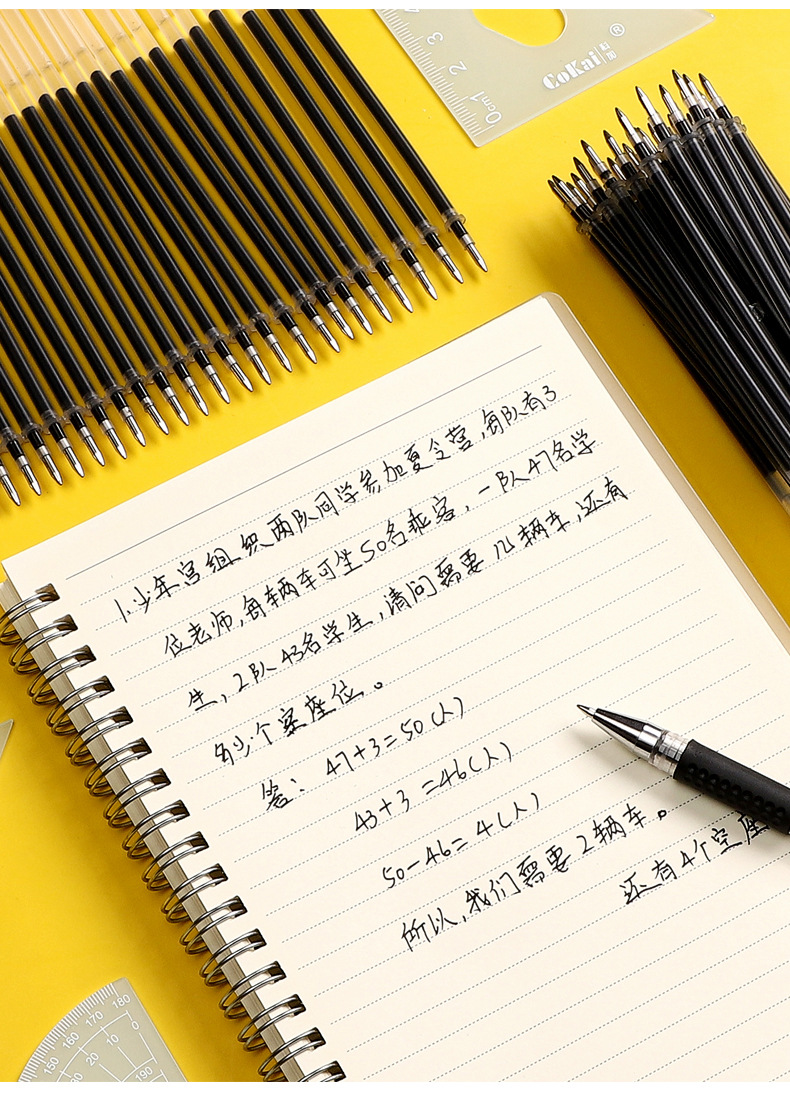 3
2
0cm1
CoKai 和加 ®
1.少年宫组织两队同学参加夏令营,每队有3
位老师,每辆车可坐50名乘客,一队47名学
生,2队43名学生,请问需要几辆车,还有
多少个空座位。
答: 47+3=50(人)
43+3=46(人)
50-46=4(人)
所以,我们需要2辆车。
还有4个空座
180
170
160
150
0
10
20
30
190